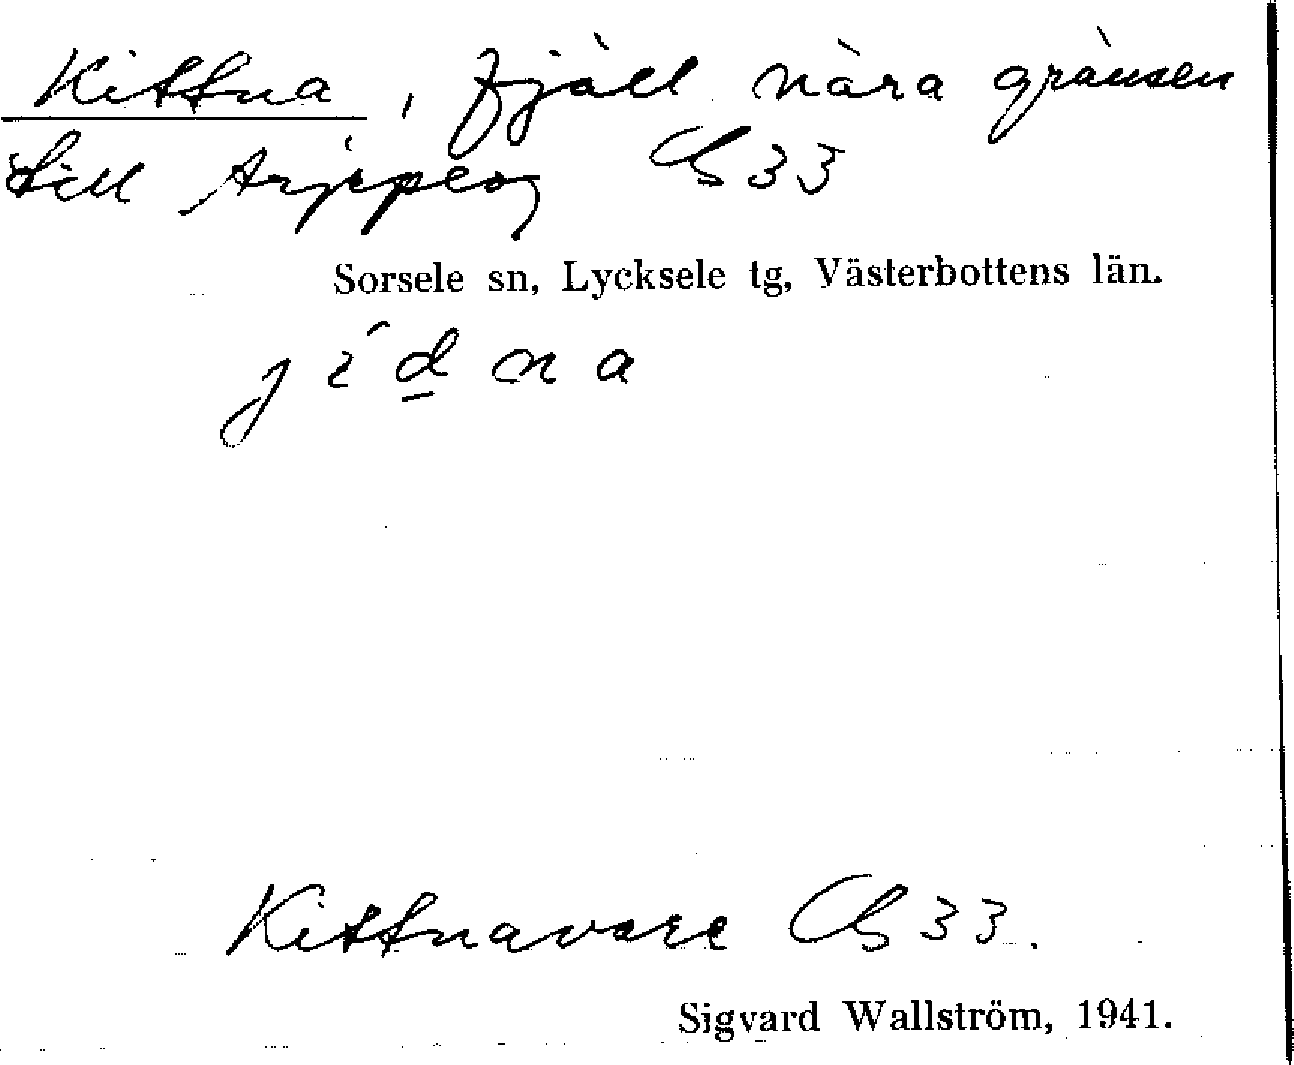 Kittna, fjäll nära gränsen
till Arjeplog Cb 33
Sorsele sn, Lycksele tg, Västerbottens län.
Kittnavare Cb 33.
Sigvard Wallström, 1941.